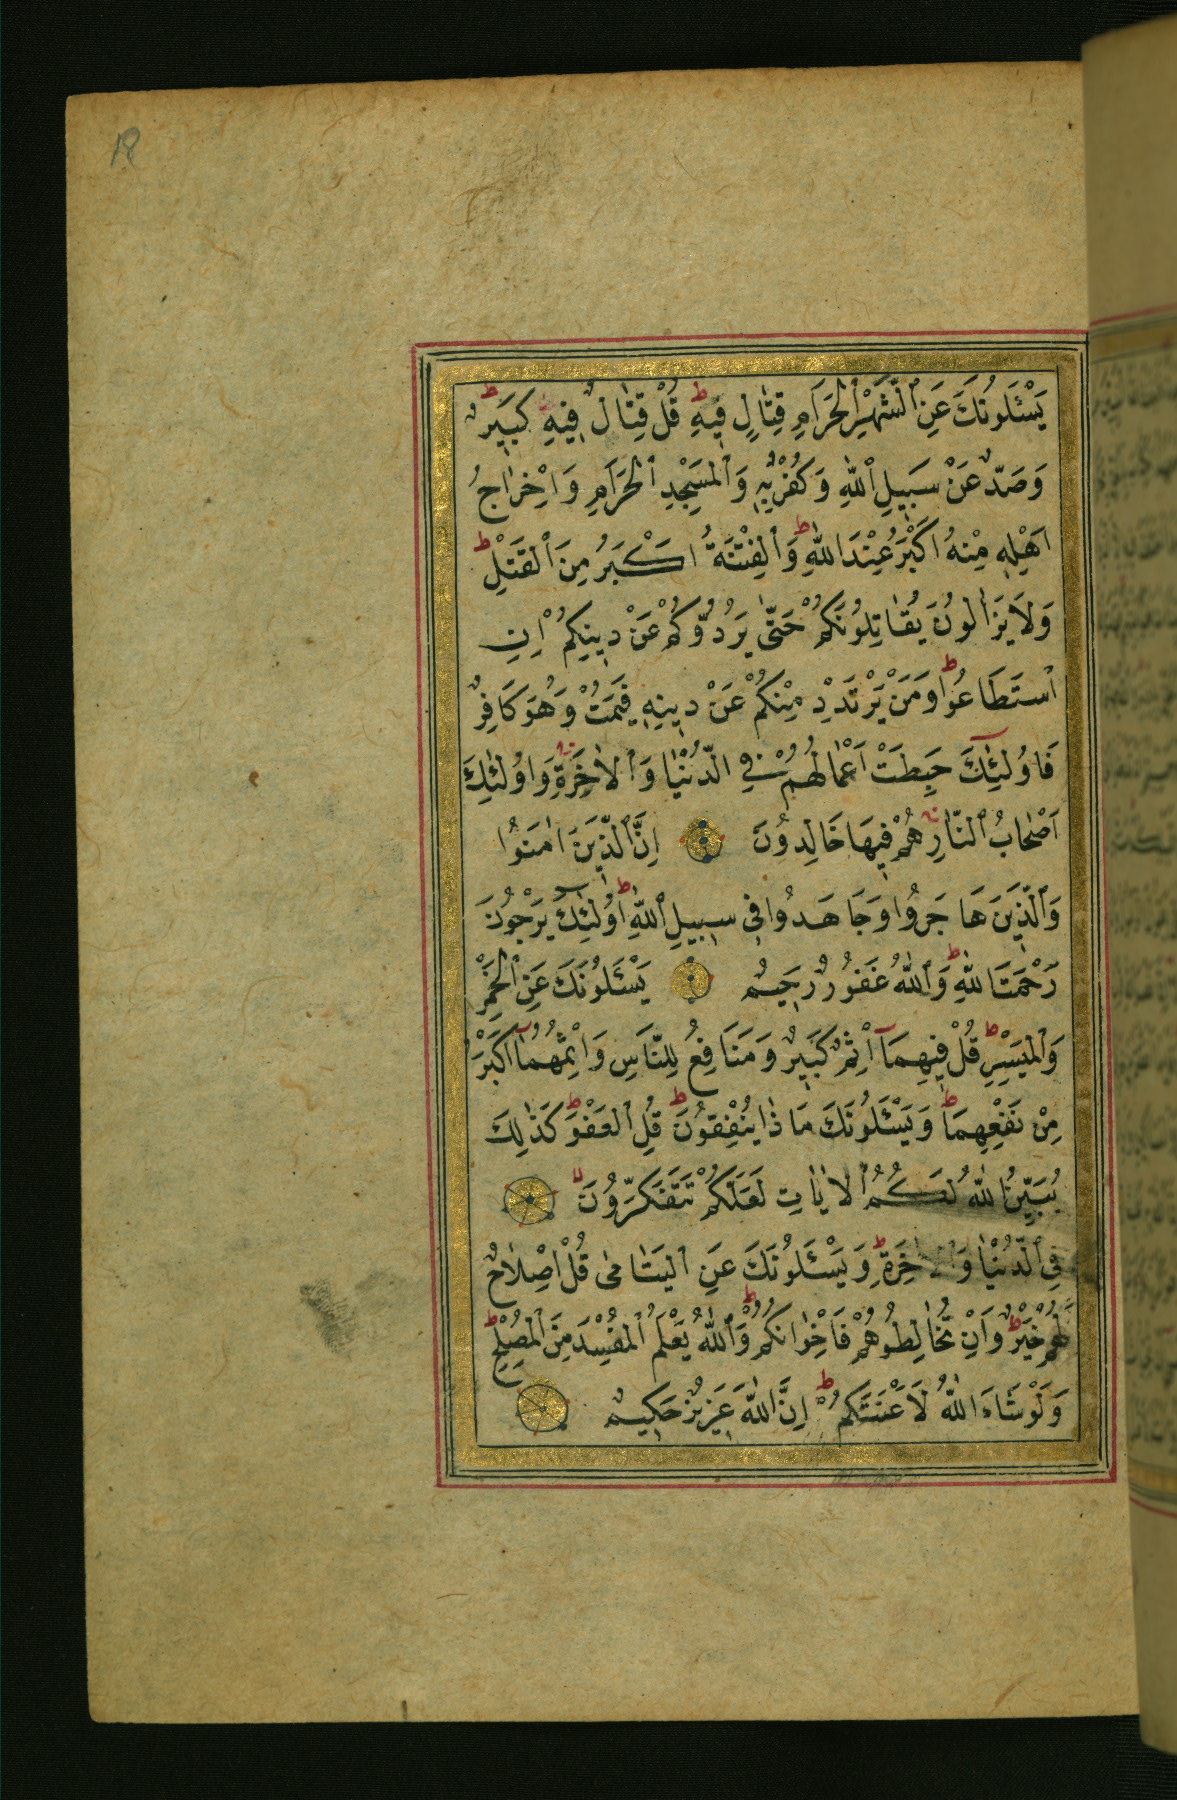 18
يَسْئَلُونَكَ عَنِ ٱلشَّهْرِ ٱلْحَرَامِ قِتَالٍ فِيهِ ط قُلْ قِتَالٌ فِيهِ كَبِيرٌ ط
وَصَدٌّ عَنْ سَبِيلِ ٱللهِ وَكُفْرٌ بِهِ وَٱلْمَسْجِدِ ٱلْحَرَامِ وَاِخْرَاجُ
اَهْلِهِ مِنْهُ اَكْبَرُ عِنْدَ اللهِ ط وَٱلْفِتْنَةُ اَكْبَرُ مِنَ ٱلْقَتْلِ ط
وَلَا يَزَالُونَ يُقَاتِلُونَكُمْ حَتّٰى يَرُدُّوكُمْ عَنْ دِينِكُمْ اِنِ
ٱسْتَطَاعُوا ط وَمَنْ يَرْتَدِدْ مِنْكُمْ عَنْ دِينِهِ فَيَمُتْ وَهُوَ كَافِرٌ
فَاُولٰئِكَ حَبِطَتْ اَعْمَالُهُمْ فِي الدُّنْيَا وَٱلْاٰخِرَةِ وَاُولٰئِكَ
اَصْحَابُ ٱلنَّارِ هُمْ فِيهَا خَالِدُونَ اِنَّ ٱلَّذِينَ اٰمَنُوا
وَٱلَّذِينَ هَاجَرُوا وَجَاهَدُوا فِي سَبِيلِ ٱللهِ ط اُولٰئِكَ يَرْجُونَ
رَحْمَتَ اللهِ ط وَٱللهُ غَفُورٌ رَحِيمٌ يَسْئَلُونَكَ عَنِ ٱلْخَمْرِ
وَٱلْمَيْسِرِ ط قُلْ فِيهِمَآ اِثْمٌ كَبِيرٌ وَمَنَافِعُ لِلنَّاسِ وَاِثْمُهُمَآ اَكْبَرُ
مِنْ نَفْعِهِمَا ط وَيَسْئَلُونَكَ مَاذَا يُنْفِقُونَ ط قُلِ ٱلْعَفْوَ ط كَذٰلِكَ
يُبَيِّنُ اللهُ لَكُمُ ٱلْاٰيَاتِ لَعَلَّكُمْ تَتَفَكَّرُونَ لا
فِي ٱلدُّنْيَا وَٱلْاٰخِرَةِ ط وَيَسْئَلُونَكَ عَنِ ٱلْيَتَامٰى قُلْ اِصْلَاحٌ
لَهُمْ خَيْرٌ ط وَاِنْ تُخَالِطُوهُمْ فَاِخْوَانُكُمْ ط وَٱللهُ يَعْلَمُ ٱلْمُفْسِدَ مِنَ ٱلْمُصْلِحِ ط
وَلَوْ شَاءَ اللهُ لَاَعْنَتَكُمْ ط اِنَّ اللهَ عَزِيزٌ حَكِيمٌ